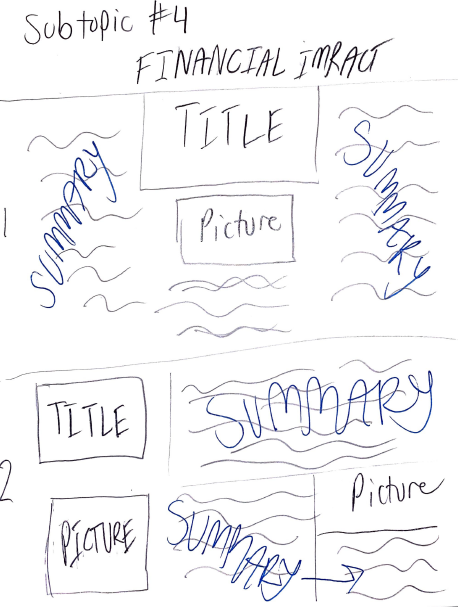 Subtopic #4
FINANCIAL IMPACT
1
TITLE
SUMMARY
Picture
SUMMARY
2
TITLE
SUMMARY
PICTURE
SUMMARY
Picture